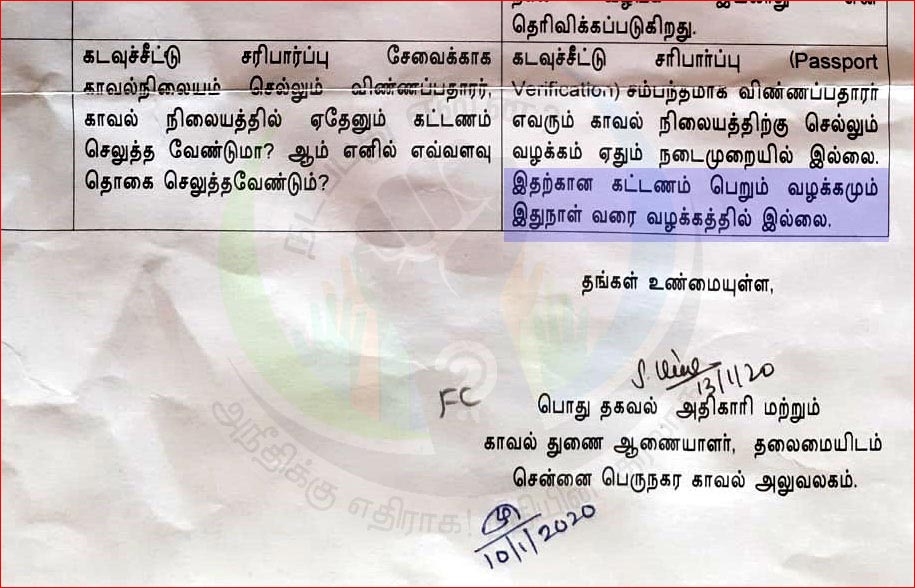 தெரிவிக்கப்படுகிறது.
கடவுச்சீட்டு சரிபார்ப்பு சேவைக்காக
காவல்நிலையம் செல்லும் விண்ணப்பதாரர்,
காவல் நிலையத்தில் ஏதேனும் கட்டணம்
செலுத்த வேண்டுமா? ஆம் எனில் எவ்வளவு
தொகை செலுத்தவேண்டும்?
கடவுச்சீட்டு சரிபார்ப்பு (Passport
Verification) சம்பந்தமாக விண்ணப்பதாரர்
எவரும் காவல் நிலையத்திற்கு செல்லும்
வழக்கம் ஏதும் நடைமுறையில் இல்லை.
இதற்கான கட்டணம் பெறும் வழக்கமும்
இதுநாள் வரை வழக்கத்தில் இல்லை.
தங்கள் உண்மையுள்ள,
13/1/20
FC
பொது தகவல் அதிகாரி மற்றும்
காவல் துணை ஆணையாளர், தலைமையிடம்
சென்னை பெருநகர காவல் அலுவலகம்.
10/1/2020
அநீதிக்கு எதிராக!